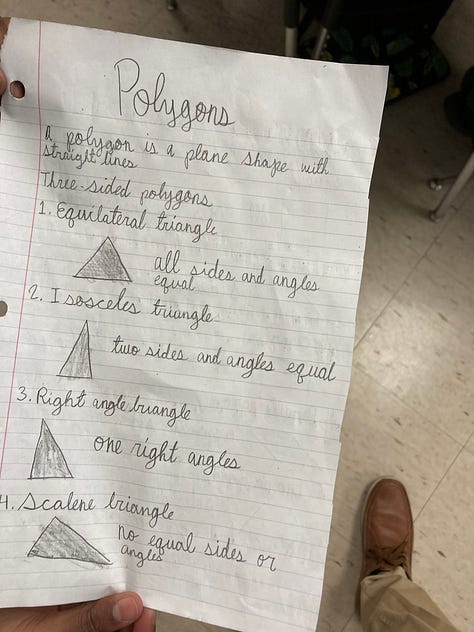 Polygons
A polygon is a plane shape with
straight lines
Three-sided polygons
1. Equilateral triangle
all sides and angles
equal
2. Isosceles triangle
two sides and angles equal
3. Right angle triangle
one right angles
4. Scalene triangle
no equal sides or
angles